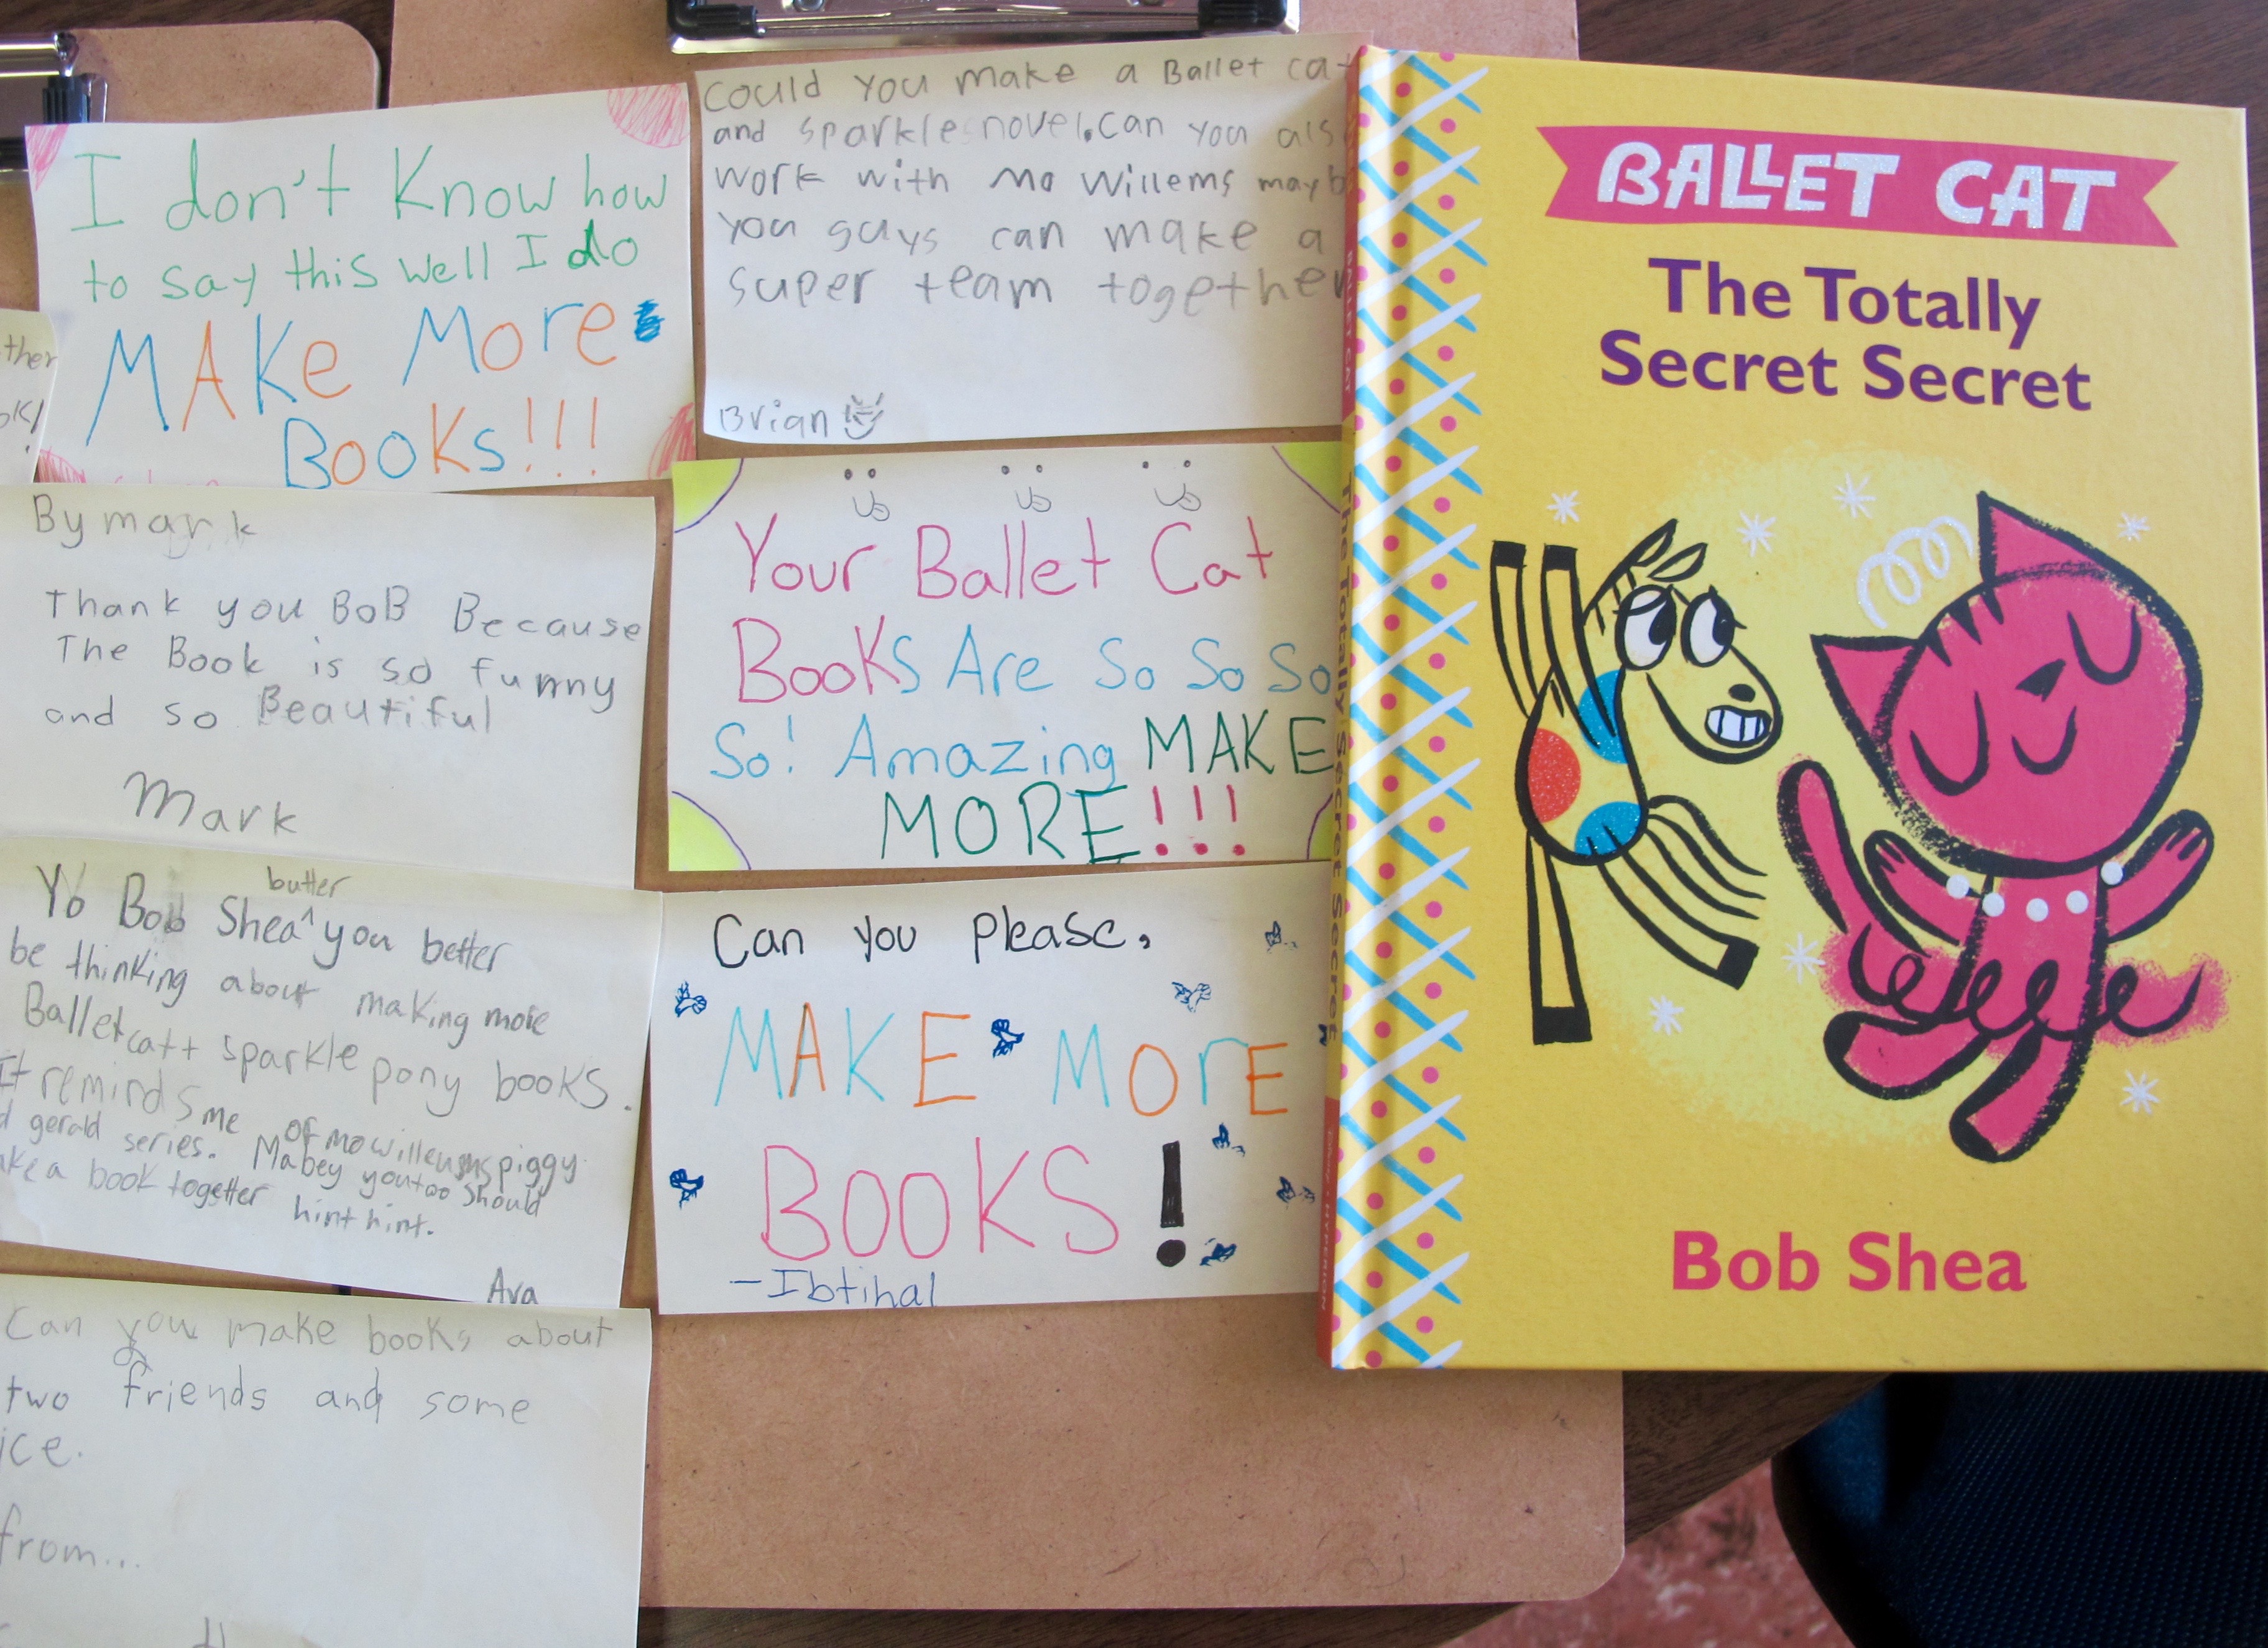 ther
I don't Know how
to say this well I do
MAKe More
BooKs!!!
Could you make a Ballet cat
and sparkle novel. Can you als
work with Mo Willems mayb
you guys can make a
super team together
Brian
By mark
Thank you BoB Because
The Book is so funny
and so Beautiful
Mark
Your Ballet Cat
BooKs Are So So So
So! Amazing MAKE
MORE!!!
butter
Yo Bob Shea ^ you better
be thinking about making more
Ballet cat + sparkle pony books.
It reminds me of mo willems piggy
d gerald series. Mabey you too should
ake a book togetter hint hint.
Ava
Can you please,
MAKE MOrE
BOOKS!
-Ibtihal
Can you make books about
two friends and some
ice.
from...
BALLET CAT
The Totally
Secret Secret
Bob Shea
BALLET CAT The Totally Secret Secret